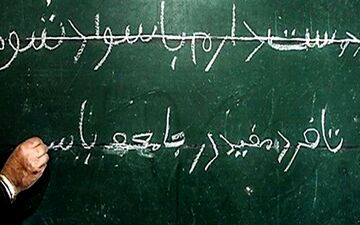 دوست دارم باسواد شوم
تا فرد مفید در جامعه باش